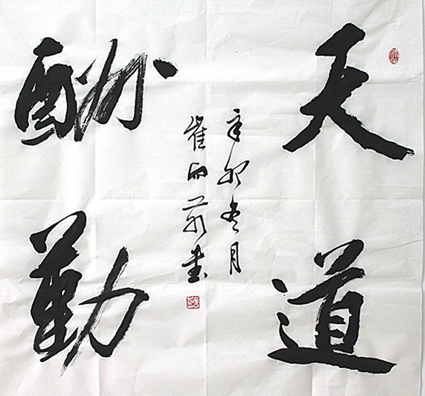 天道
酬勤
辛卯冬月
崔向前书